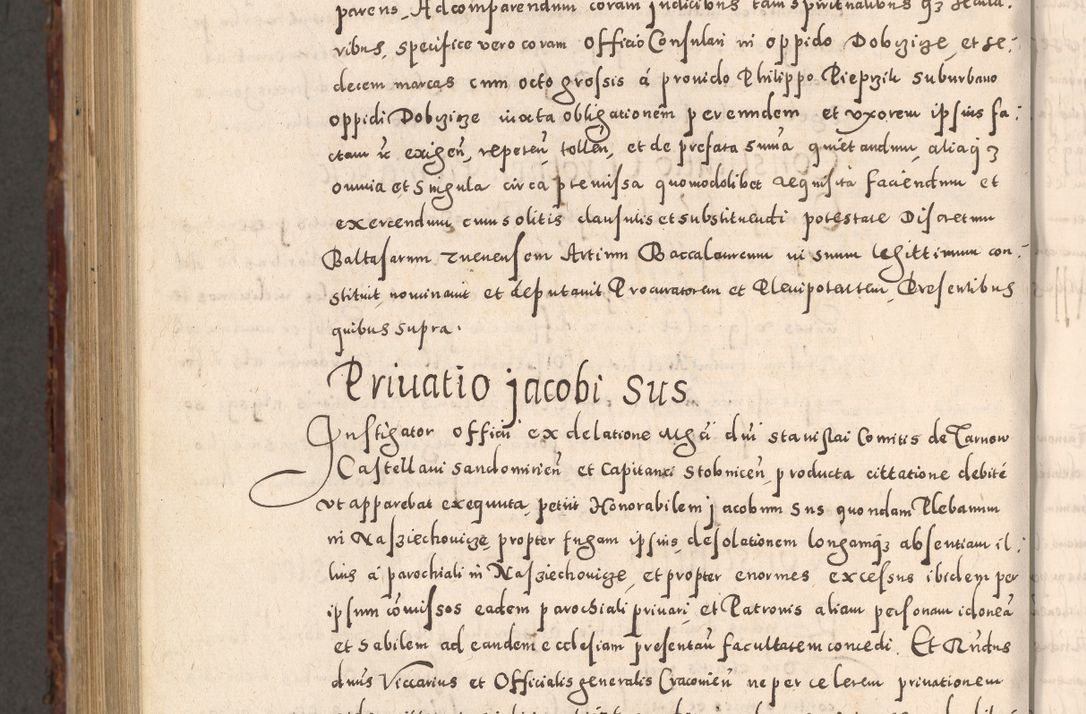 parens, Ad comparendum coram judicibus tam spiritualibus q3 secula:
ribus, specifice vero coram officio Consulari in oppido Dobczicze, et se:
decem marcas cum octo grossis á prouido Philippo Piepszik suburbano
oppidi Dobczicze iuxta obligationem per eundem et vxorem ipsius fa:
ctam ꝛc exigeñ, repeteñ, tolleñ, et de prefata summa quietandum, aliaq3
omnia et Singula circa premissa quomodolibet requisita faciendum et
exercendum cum solitis clausulis et substituendi potestate Discretum
Baltasarum Artium Baccalaureum in suum legittimum con:
stituit, nominauit et deputauit Procuratorem et Plenipotentem, Presentibus
quibus supra.
Priuatio jacobi Sus
Instigator officii ex delatione Mgci dni Stanislai Comitis de Tarnow
Castellani Sandomirieñ et Capitanei Stobniceñ, producta cittatione debite
vt apparebat exequuta, petiit Honorabilem jacobum Sus quondam Plebanum
in Nasziechowicze, propter fugam ipsius, desolationem longamq3 absentiam il:
lius á parochiali in Nasziechouicze, et propter enormes excessus ibidem per
ipsum comissos eadem parochiali priuari, et Patronis aliam personam idoneã
et habilem ad eandem ecclesiam presentañ facultatem concedi. Et Rñdus
dnus Viccarius et Officialis generalis Cracouieñ ne per celerem priuationem